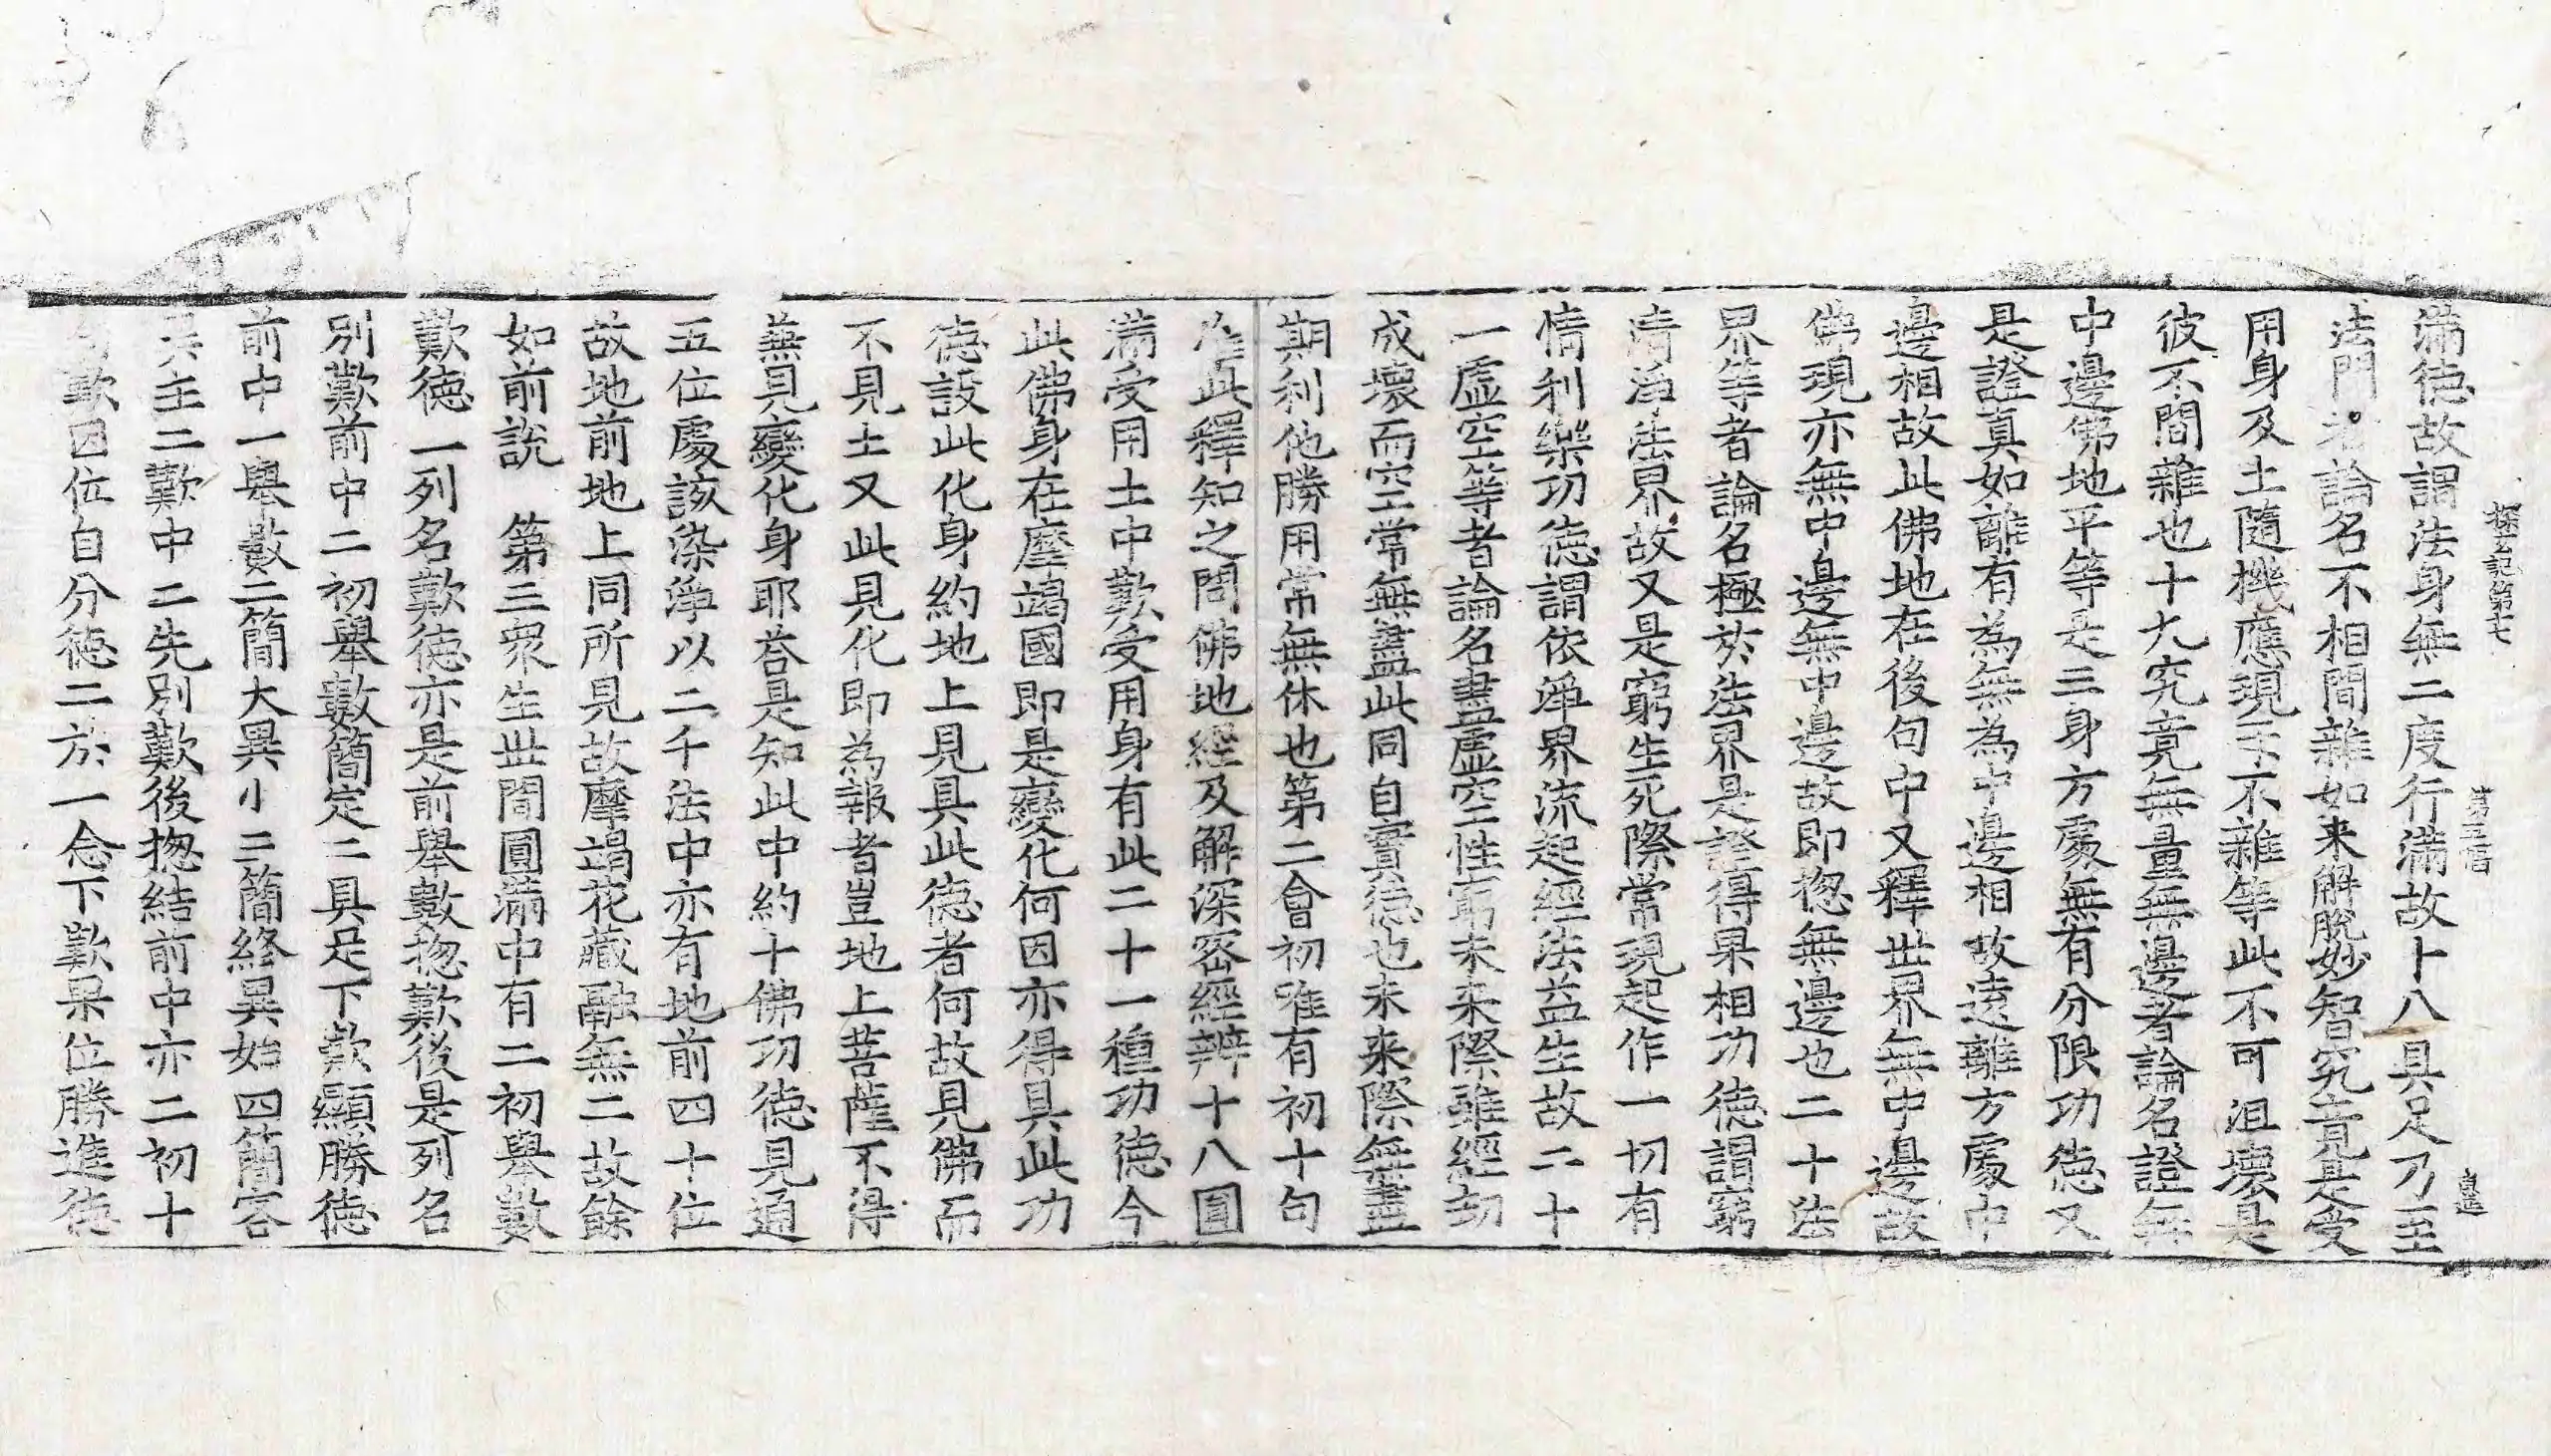 探玄記第七
第三幅
自進
滿德故謂法身無二度行滿故十八具足乃至
法門者論名不相間雜如来解脫妙智究竟是受
用身及土隨機應現玉不雜等此不可沮壞是
彼不間雜也十九究竟無量無邊者論名證無
中邊佛地平等是三身方處無有分限功德又
是證真如離有為無為中邊相故遠離方處中
邊相故此佛地在後句中又釋世界無中邊故
佛現亦無中邊無中邊故即揔無邊也二十法
界等者論名極於法界是證得果相功德謂窮
清淨法界故又是窮生死際常現起作一切有
情利樂功德謂依淨界流起經法益生故二十
一虛空等者論名盡虛空性窮未来際雖經劫
成壞而空常無盡此同自實德也未来際無盡
期利他勝用常無休也第二會初唯有初十句
准此釋知之問佛地經及解深密經辨十八圓
滿受用土中歎受用身有此二十一種功德今
此佛身在摩竭國即是變化何因亦得具此功
德設此化身約地上見具此德者何故見佛而
不見土又此見化即為報者豈地上菩薩不得
無見變化身耶荅是知此中約十佛功德見通
五位處該染淨以二千法中亦有地前四十位
故地前地上同所見故摩竭花藏融無二故餘
如前說　第三眾生世間圓滿中有二初舉數
歎德一列名歎德亦是前舉數揔歎後是列名
別歎前中二初舉數簡定二具足下歎顯勝德
前中一舉數二簡大異小三簡終異始四簡客
異主二歎中二先別歎後揔結前中亦二初十
句歎因位自分德二於一念下歎果位勝進德